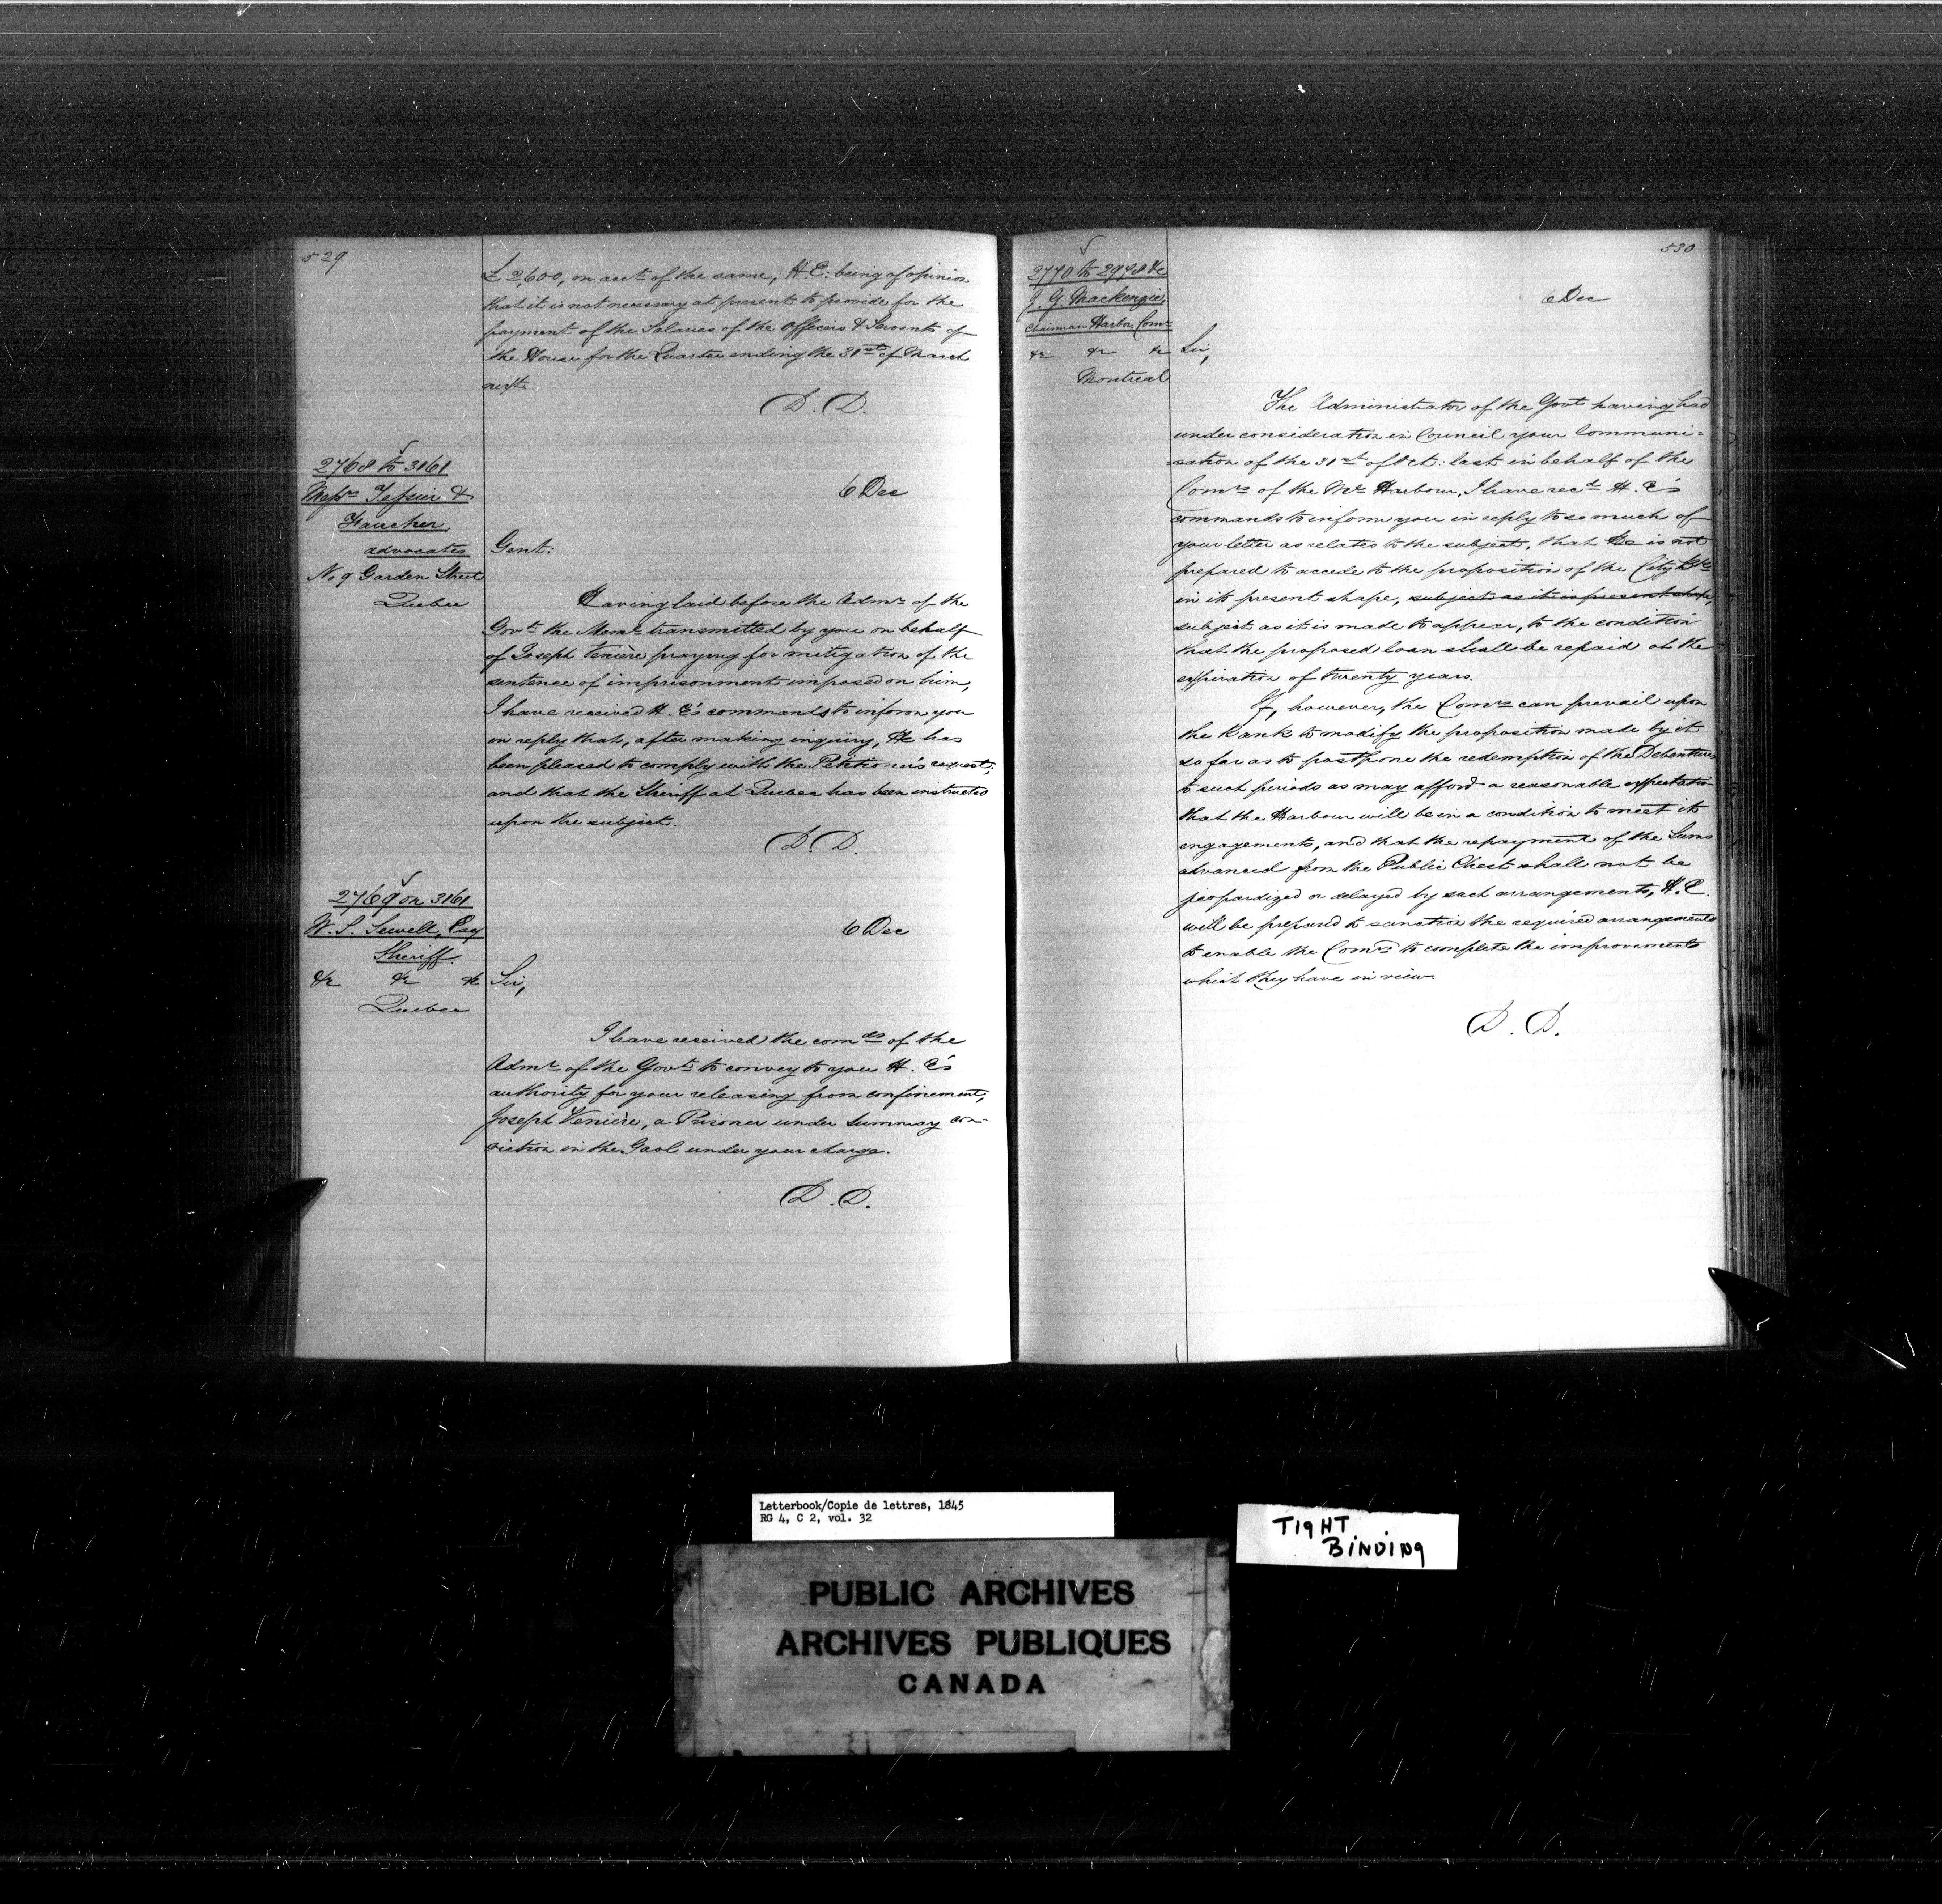 529
£2,600, on acct of the same; H.E. being of opinion
that it is not necessary at present to provide for the
payment of the Salaries of the Officers & Servants of
the House for the Quarter ending the 31st of March
next.
D. D.
2768 to 3161
Messrs Tessier &
Faucher,
advocates
No 9 Garden Street
Quebec
6 Dec
Gent:
Having laid before the Admr of the
Govt the Meml transmitted by you on behalf
of Joseph Venière praying for mitigation of the
sentence of imprisonment imposed on him,
I have received H. E's commands to inform you
in reply that, after making inquiry, He has
been pleased to comply with the Petitioner's request,
and that the Sheriff at Quebec has been instructed
upon the subject.
D. D.
2769 on 3161
W. S. Sewell, Esq
Sheriff
&c &c &c
Quebec
6 Dec
Sir,
I have received the comds of the
Admr of the Govt to convey to you H. E's
authority for your releasing from confinement,
Joseph Venière, a Prisoner under summary con-
viction in the Gaol under your charge.
D. D.
530
2770 to 2978 &c
J. G. Mackenzie,
Chairman Harbr Comrs
&c &c &c
Montreal
6 Dec
Sir,
The Administrator of the Govt having had
under consideration in Council your Communi-
cation of the 31st of Oct: last in behalf of the
Comrs of the Ml Harbour, I have recd H. E's
commands to inform you in reply to so much of
your letter as relates to the subject, that He is not
prepared to accede to the proposition of the City Bk
in its present shape, subject as it is present shape,
subject as it is made to appear, to the condition
that the proposed loan shall be repaid at the
expiration of twenty years.
If, however, the Comrs can prevail upon
the Bank to modify the proposition made by it
so far as to postpone the redemption of the Debentures
to such periods as may afford a reasonable expectation
that the Harbour will be in a condition to meet its
engagements, and that the repayment of the Sums
advanced from the Public Chest shall not be
jeopardized or delayed by such arrangements, H. E.
will be prepared to sanction the required arrangements
to enable the Comrs to complete the improvements
which they have in view.
D. D.
Letterbook/Copie de lettres, 1845
RG 4, C 2, vol. 32
TIGHT
BINDING
PUBLIC ARCHIVES
ARCHIVES PUBLIQUES
CANADA